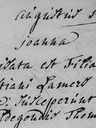 augustus s
joanna
itata est Filia
tiani Lamers
D: Susceperunt
ldegondis Thom